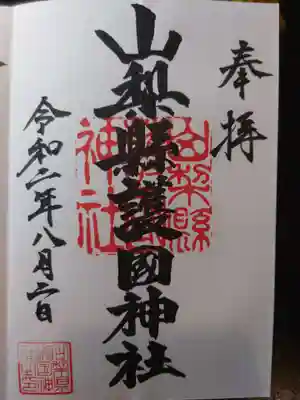 奉拝
山梨縣護國神社
山梨縣
神社
令和二年八月二日